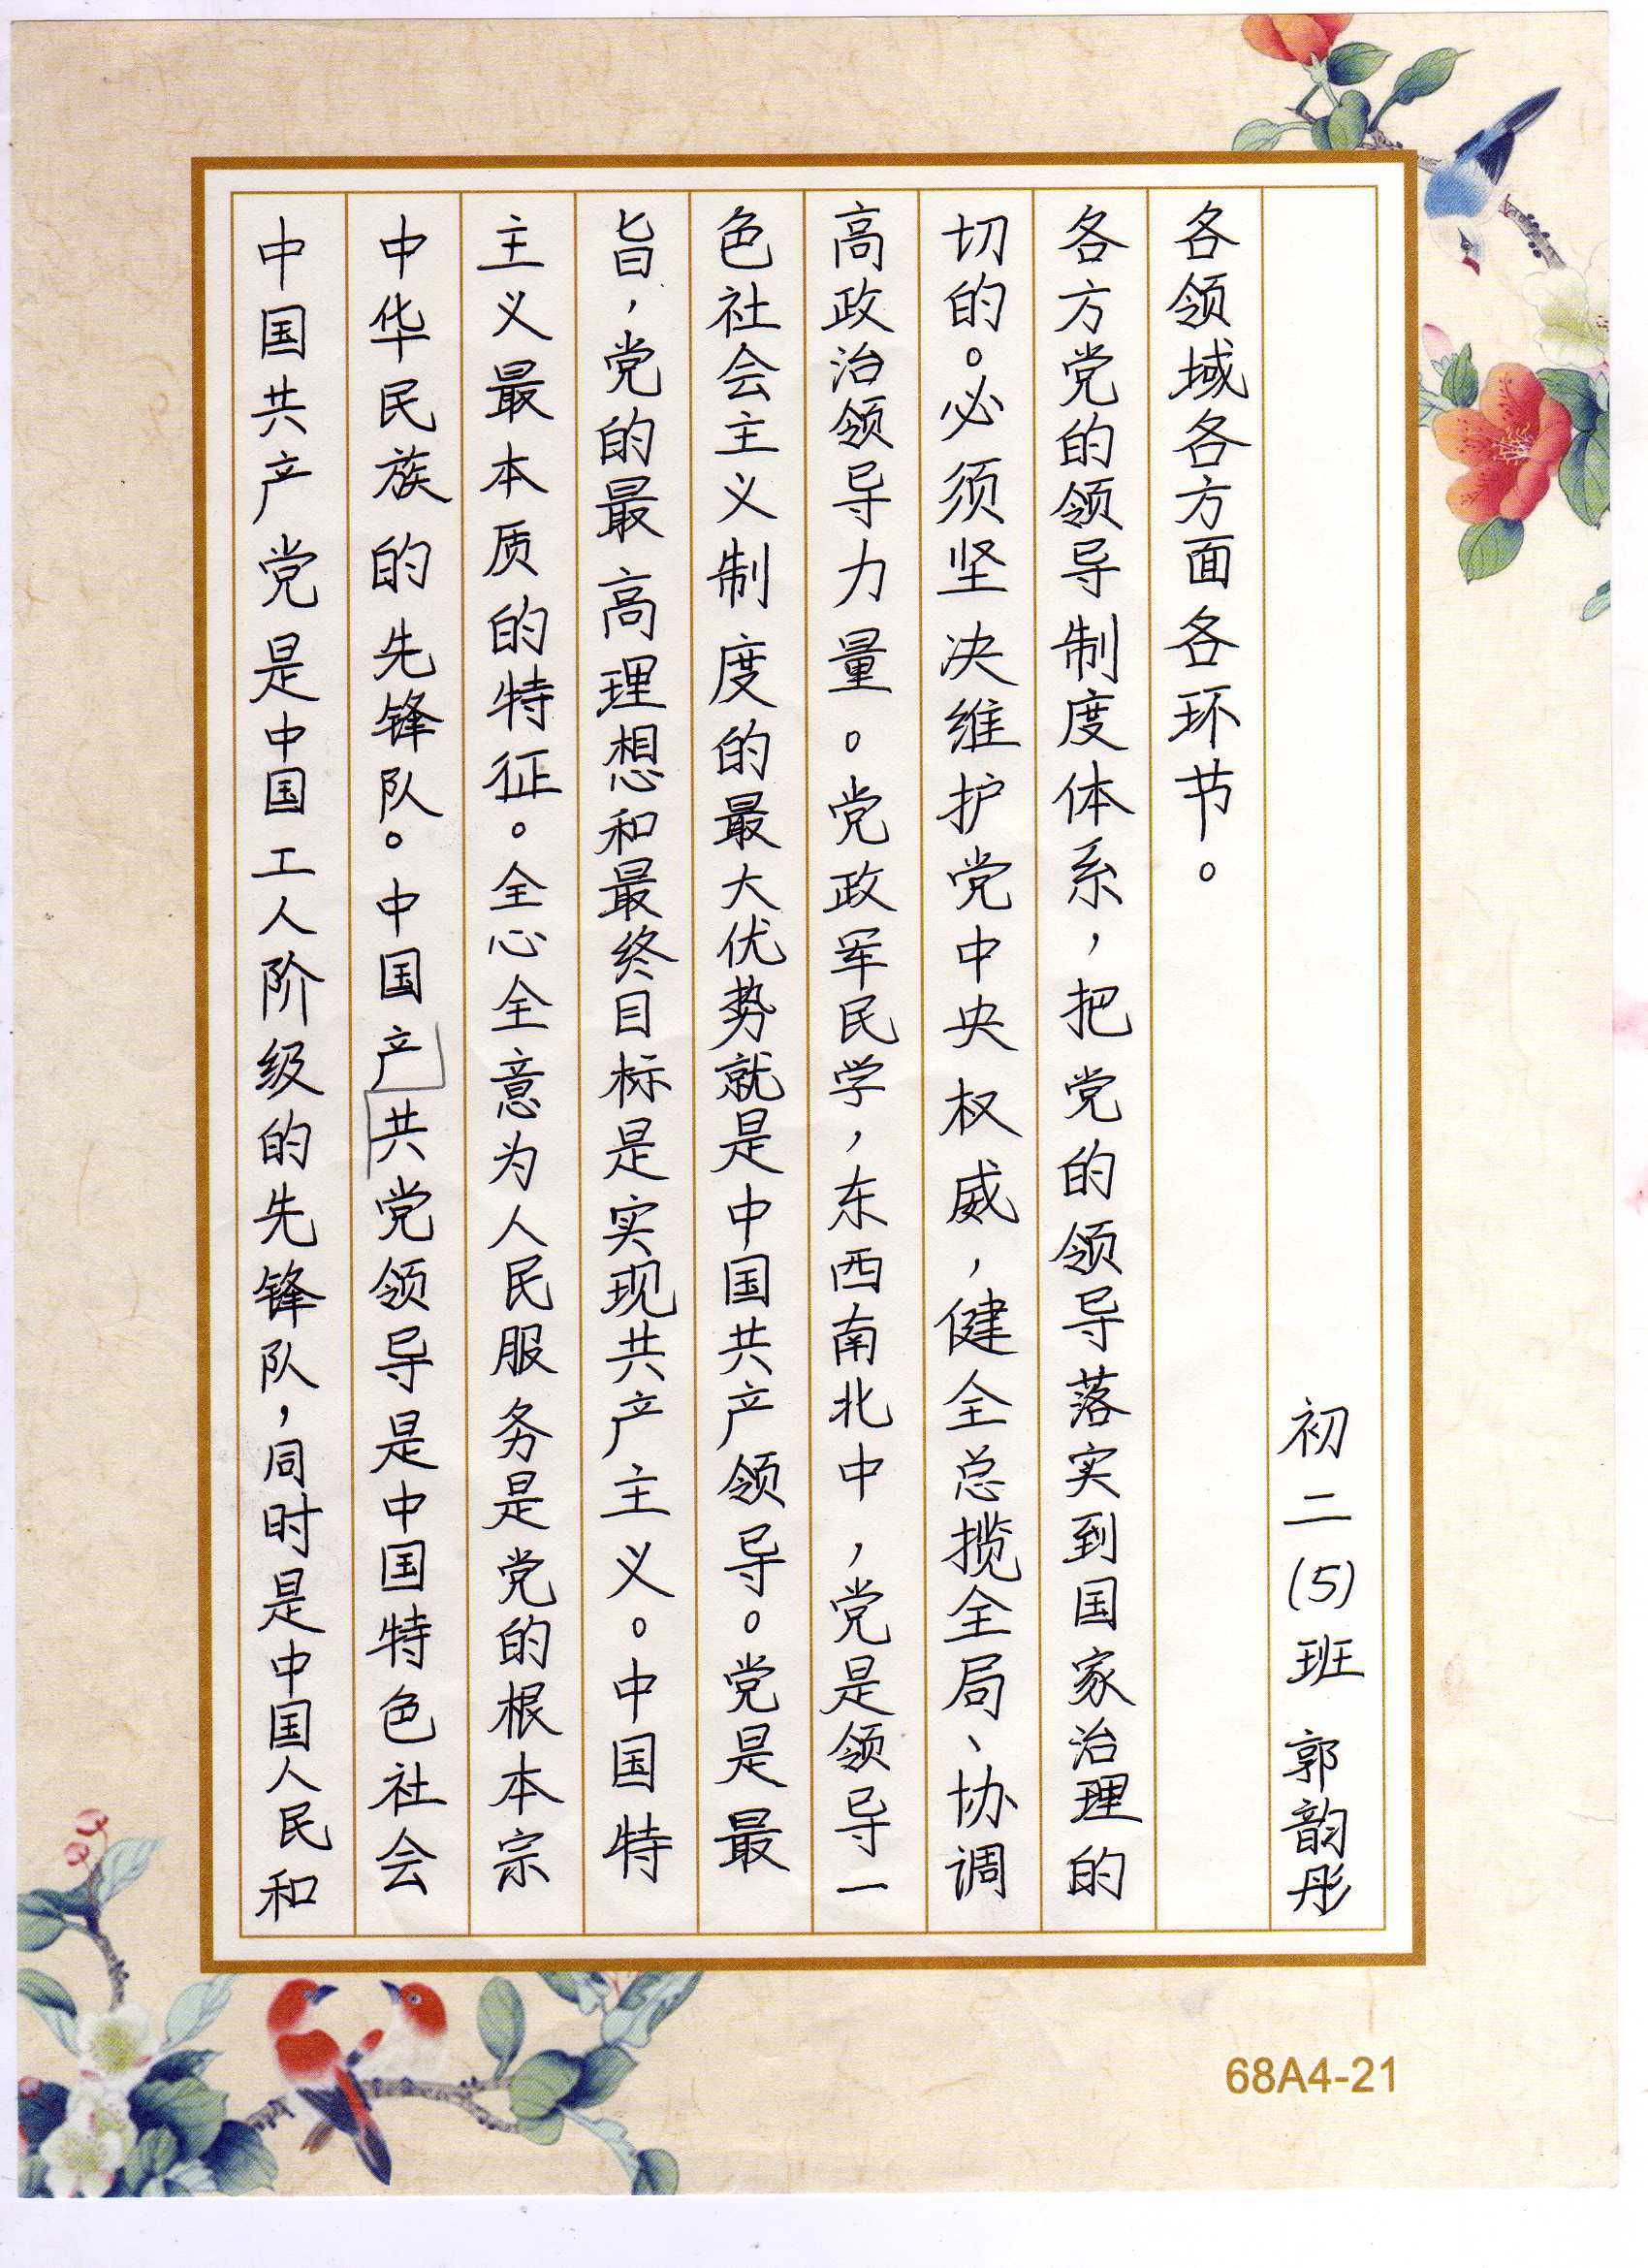 中国共产党是中国工人阶级的先锋队，同时是中国人民和
中华民族的先锋队。中国产共党领导是中国特色社会
主义最本质的特征。全心全意为人民服务是党的根本宗
旨，党的最高理想和最终目标是实现共产主义。中国特
色社会主义制度的最大优势就是中国共产领导。党是最
高政治领导力量。党政军民学，东西南北中，党是领导一
切的。必须坚决维护党中央权威，健全总揽全局、协调
各方党的领导制度体系，把党的领导落实到国家治理的
各领域各方面各环节。
初二(5)班 郭韵彤
68A4-21